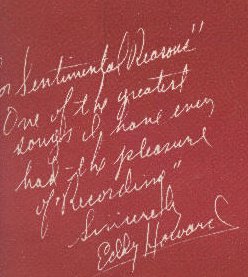 or Sentimental Reasons"
One of the greatest
songs I have ever
had the pleasure
of "Recording"
Sincerely
Eddy Howard